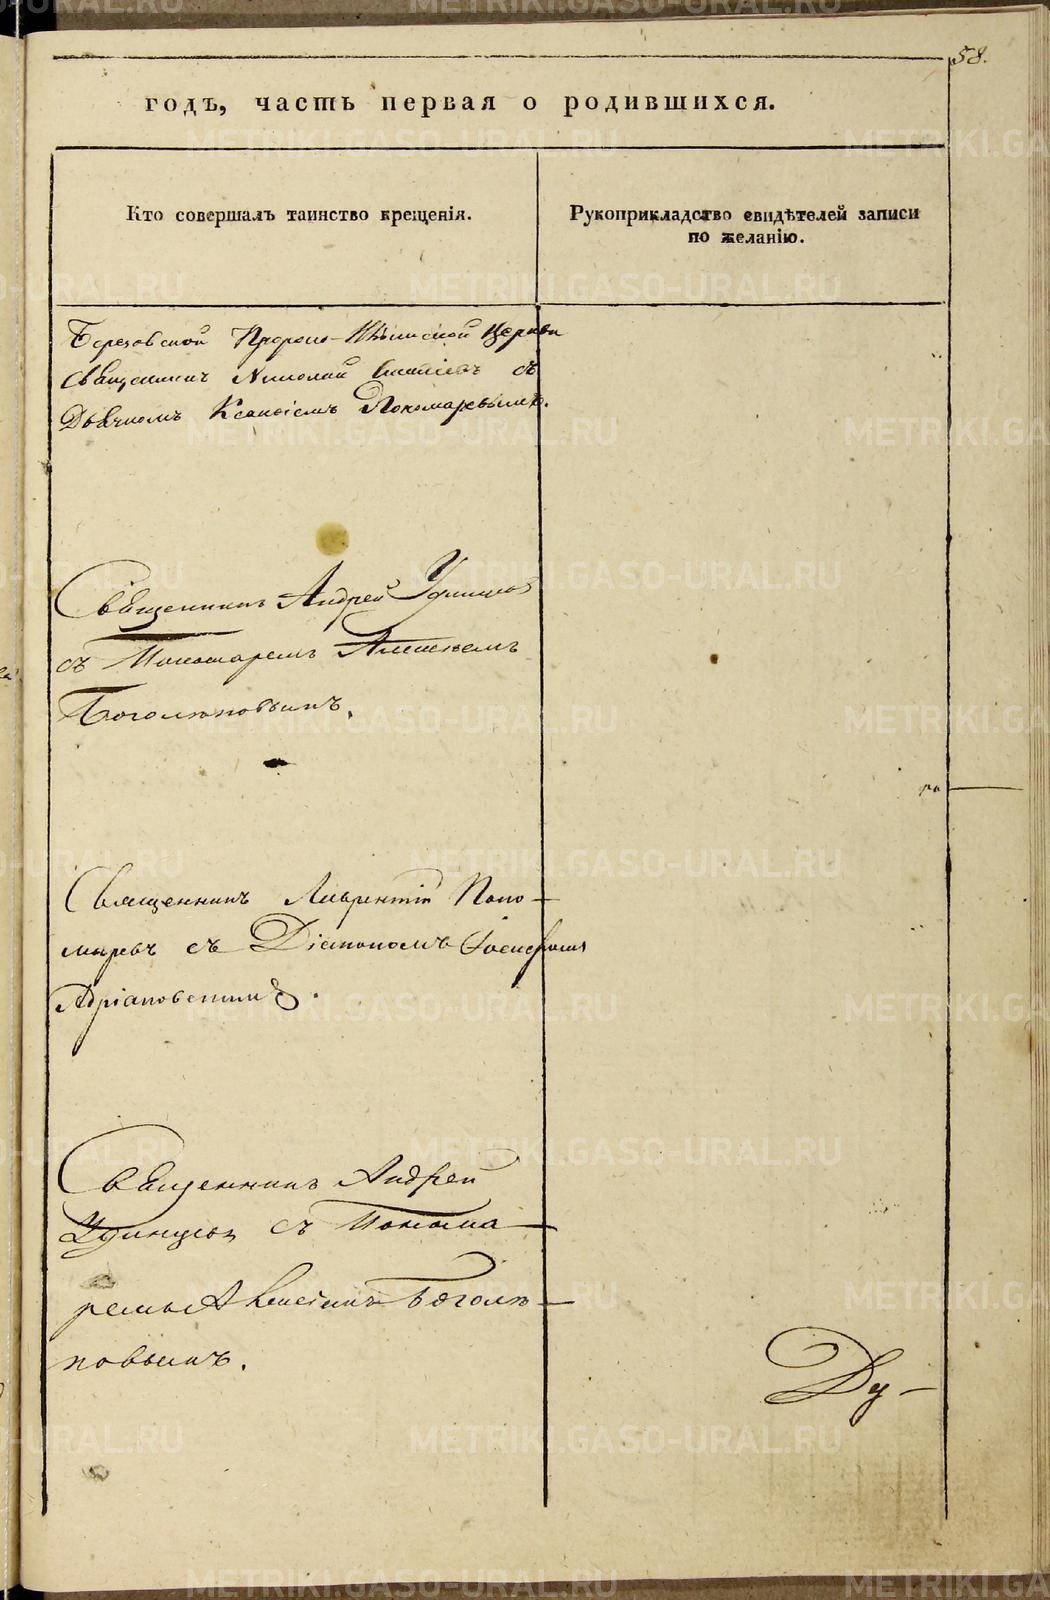 58.
годъ, часть первая о родившихся.
Кто совершалъ таинство крещенія.
Рукоприкладство свидѣтелей записи
по желанію.
Березовской Пророко-Ильинской Церкви
Священникъ Николай съ
Дьячкомъ Пономаревымъ.
Священникъ Андрей Удинцов
съ Пономаремъ Алексѣемъ
Боголюповымъ.
Священникъ Лаврентій Поно-
маревъ съ Діакономъ Іосифомъ
Адріановскимъ.
Священникъ Андрей
Удинцов съ Понома-
ремъ Алексіемъ Боголю-
повымъ.
Ду-
METRIKI.GASO-URAL.RU